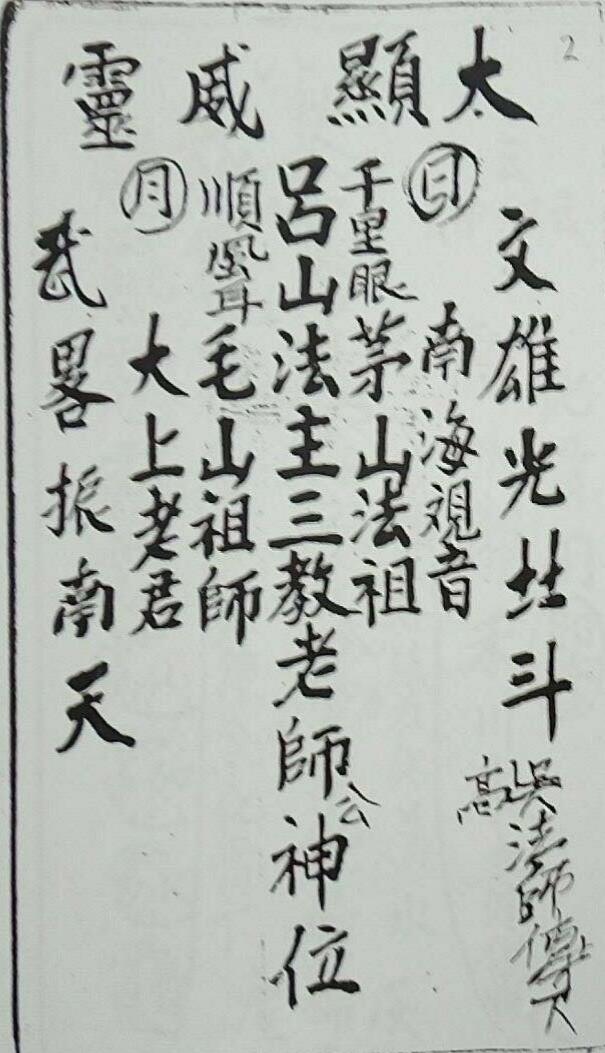 2
太顯威靈
文雄光北斗
日
南海観音
千里眼
茅山法祖
呂山法主三教老師公神位
順風耳
毛山祖師
月
大上老君
武畧振南天
高吳法師傳下